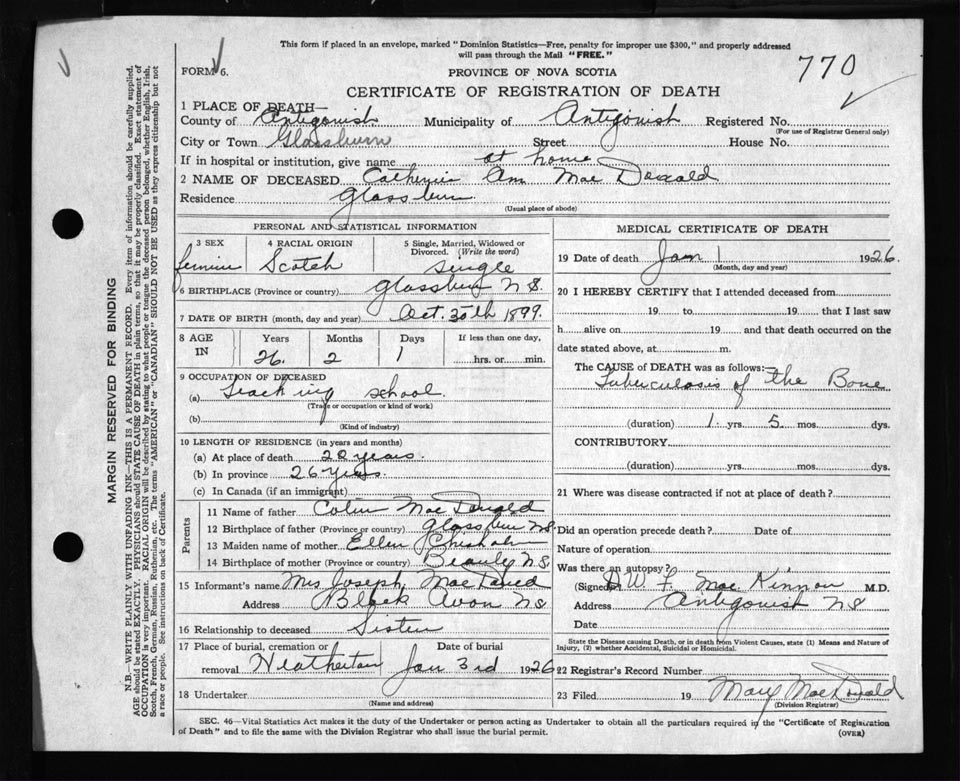 This form if placed in an envelope, marked "Dominion Statistics—Free, penalty for improper use $300," and properly addressed
will pass through the Mail "FREE."
FORM 6.
770
PROVINCE OF NOVA SCOTIA
CERTIFICATE OF REGISTRATION OF DEATH
1 PLACE OF DEATH—
County of Antigonish Municipality of Antigonish Registered No.
(For use of Registrar General only)
City or Town Glassburn Street House No.
If in hospital or institution, give name at home
2 NAME OF DECEASED Catherine Ann Mac Donald
Residence Glassburn
(Usual place of abode)
PERSONAL AND STATISTICAL INFORMATION
3 SEX 4 RACIAL ORIGIN 5 Single, Married, Widowed or
Divorced. (Write the word)
Scotch single
6 BIRTHPLACE (Province or country) Glassburn N S.
7 DATE OF BIRTH (month, day and year) Oct. 30th 1899.
8 AGE IN Years Months Days If less than one day,
26. 2 1 hrs. or min.
9 OCCUPATION OF DECEASED
(a) Teaching school.
(Trade or occupation or kind of work)
(b)
(Kind of industry)
10 LENGTH OF RESIDENCE (in years and months)
(a) At place of death 20 years.
(b) In province 26 years.
(c) In Canada (if an immigrant)
Parents
11 Name of father Colin Mac Donald
12 Birthplace of father (Province or country) Glassburn NS.
13 Maiden name of mother Ellen Chisholm
14 Birthplace of mother (Province or country) Beauly N.S.
15 Informant's name Mrs Joseph Mac David
Address Black Avon NS
16 Relationship to deceased Sister
17 Place of burial, cremation or Date of burial
removal Heatherton Jan 3rd 1926
18 Undertaker
(Name and address)
MEDICAL CERTIFICATE OF DEATH
19 Date of death Jan 1 1926.
(Month, day and year)
20 I HEREBY CERTIFY that I attended deceased from
19 to 19 that I last saw
h alive on 19 and that death occurred on
date stated above, at m.
The CAUSE of DEATH was as follows:
Tuberculosis of the Bone
(duration) 1 yrs. 5 mos. dys.
CONTRIBUTORY
(duration) yrs. mos. dys.
21 Where was disease contracted if not at place of death?
Did an operation precede death? Date of
Nature of operation
Was there an autopsy?
(Signed) W. F. Mac Kinnon M.D.
Address Antigonish NS
Date
State the Disease causing Death, or in death from Violent Causes, state (1) Means and Nature of
Injury, (2) whether Accidental, Suicidal or Homicidal.
22 Registrar's Record Number
23 Filed 19 Mary MacDonald
(Division Registrar)
SEC. 46—Vital Statistics Act makes it the duty of the Undertaker or person acting as Undertaker to obtain all the particulars required in the "Certificate of Registration
of Death" and to file the same with the Division Registrar who shall issue the burial permit. (OVER)
MARGIN RESERVED FOR BINDING
N.B.—WRITE PLAINLY WITH UNFADING INK—THIS IS A PERMANENT RECORD. Every item of information should be carefully supplied.
AGE should be stated EXACTLY. PHYSICIANS should STATE CAUSE OF DEATH in plain terms, so that it may be properly classified. Exact statement of
OCCUPATION is very important. RACIAL ORIGIN will be described by stating to what people or tongue the deceased person belonged, whether English, Irish,
Scotch, French, German, Russian, Ruthenian, etc. The terms "AMERICAN" or "CANADIAN" SHOULD NOT BE USED as they express citizenship but not
a race or people. See instructions on back of Certificate.